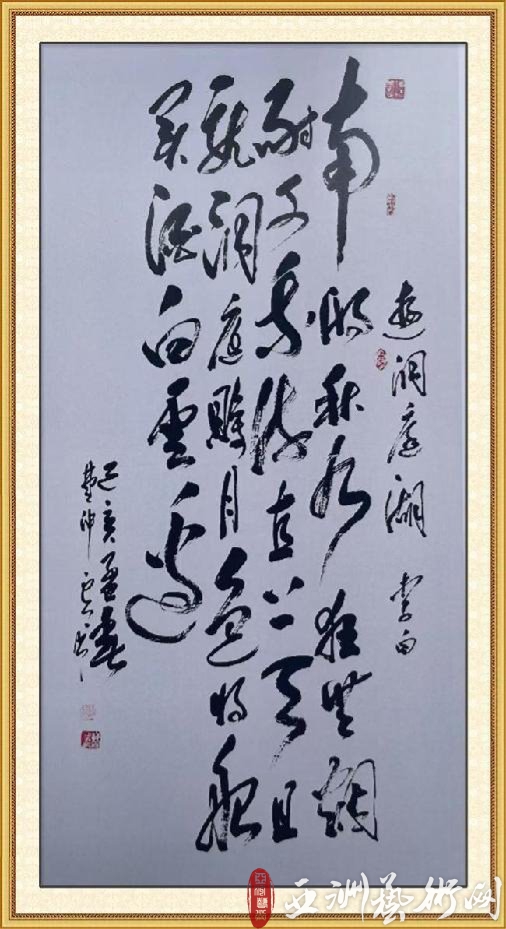 遊洞庭湖 李白
南湖秋水夜無烟
耐可乘流直上天且
就洞庭賒月色将船
買酒白雲邊
己亥孟春
亚洲藝术网